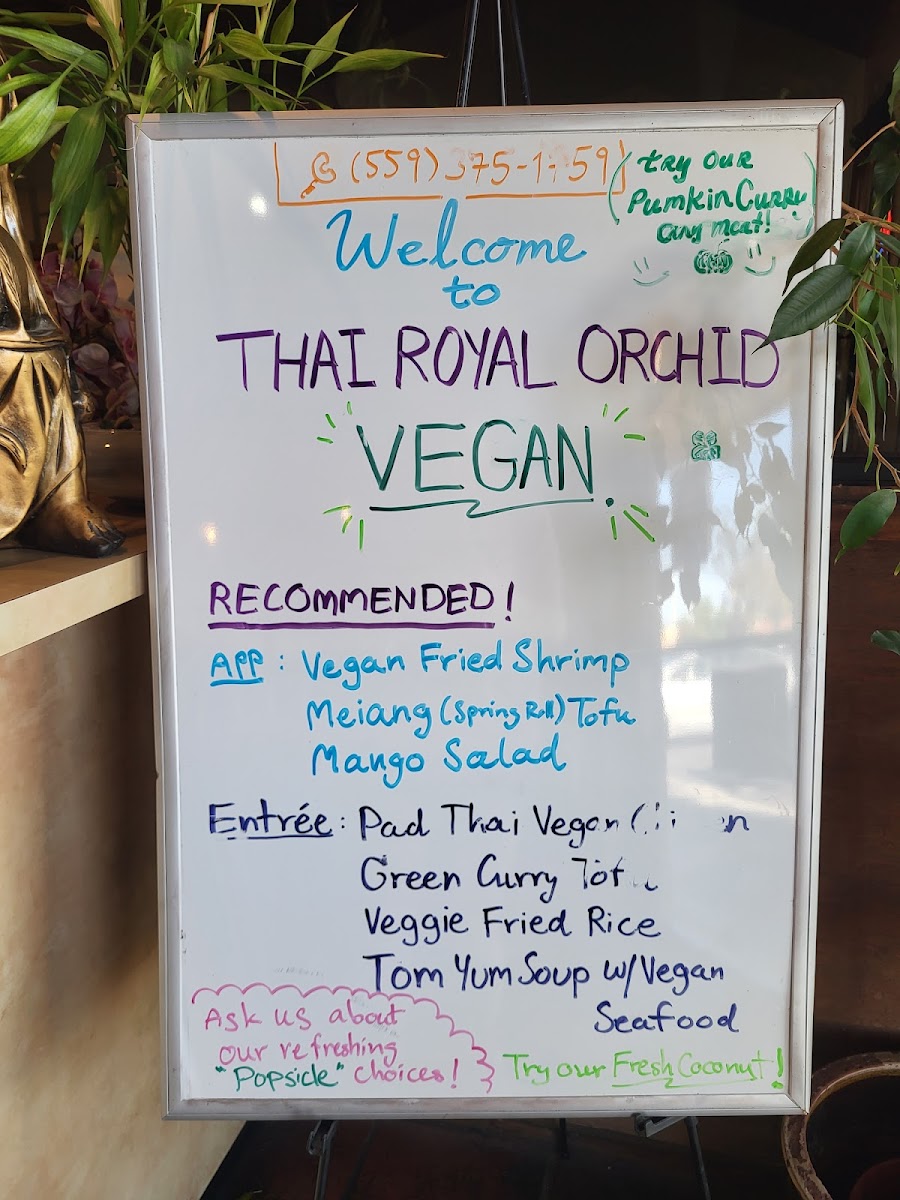 (559)
try our
Pumkin Curry
any meat!
Welcome
to
THAI ROYAL ORCHID
VEGAN.
RECOMMENDED!
APP : Vegan Fried Shrimp
Meiang (Spring Roll) Tofu
Mango Salad
Entrée : Pad Thai Vegan
Green Curry
Veggie Fried Rice
Tom Yum Soup w/Vegan
Seafood
Ask us about
our refreshing
"Popsicle" choices!
Try our Fresh Coconut!